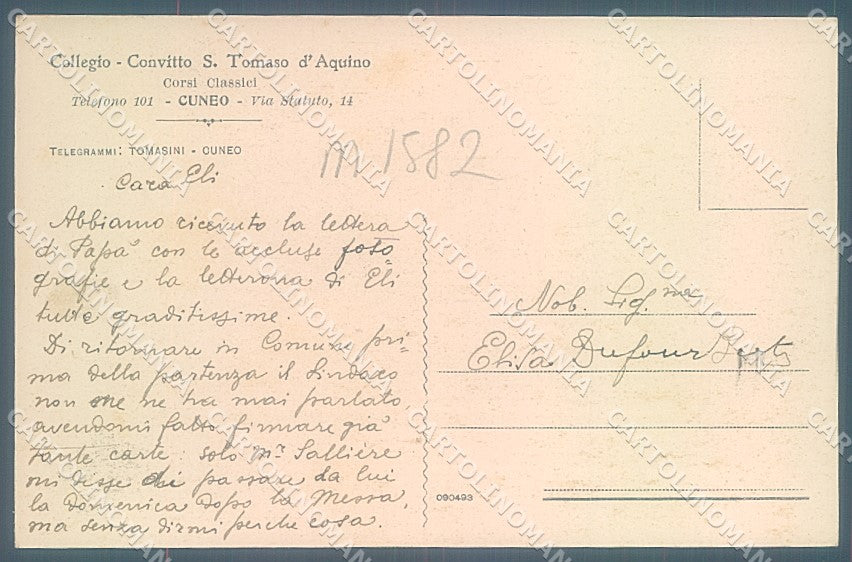 Collegio - Convitto S. Tomaso d'Aquino
Corsi Classici
Telefono 101 - CUNEO - Via Statuto, 14
TELEGRAMMI: TOMASINI - CUNEO
M 1882
Cara Eli
Abbiamo ricevuto la lettera
di Papà con le accluse foto-
grafie e la letterona di Eli
tutte graditissime.
Di ritornare in Comune pri-
ma della partenza il Sindaco
non me ne ha mai parlato
avendomi fatto firmare già
tante carte: solo Mr Sallière
mi disse di passare da lui
la Domenica dopo la Messa,
ma senza dirmi perchè cosa.
Nob. Sig.na
Elisa Dufour Berte
090493
CARTOLINOMANIA